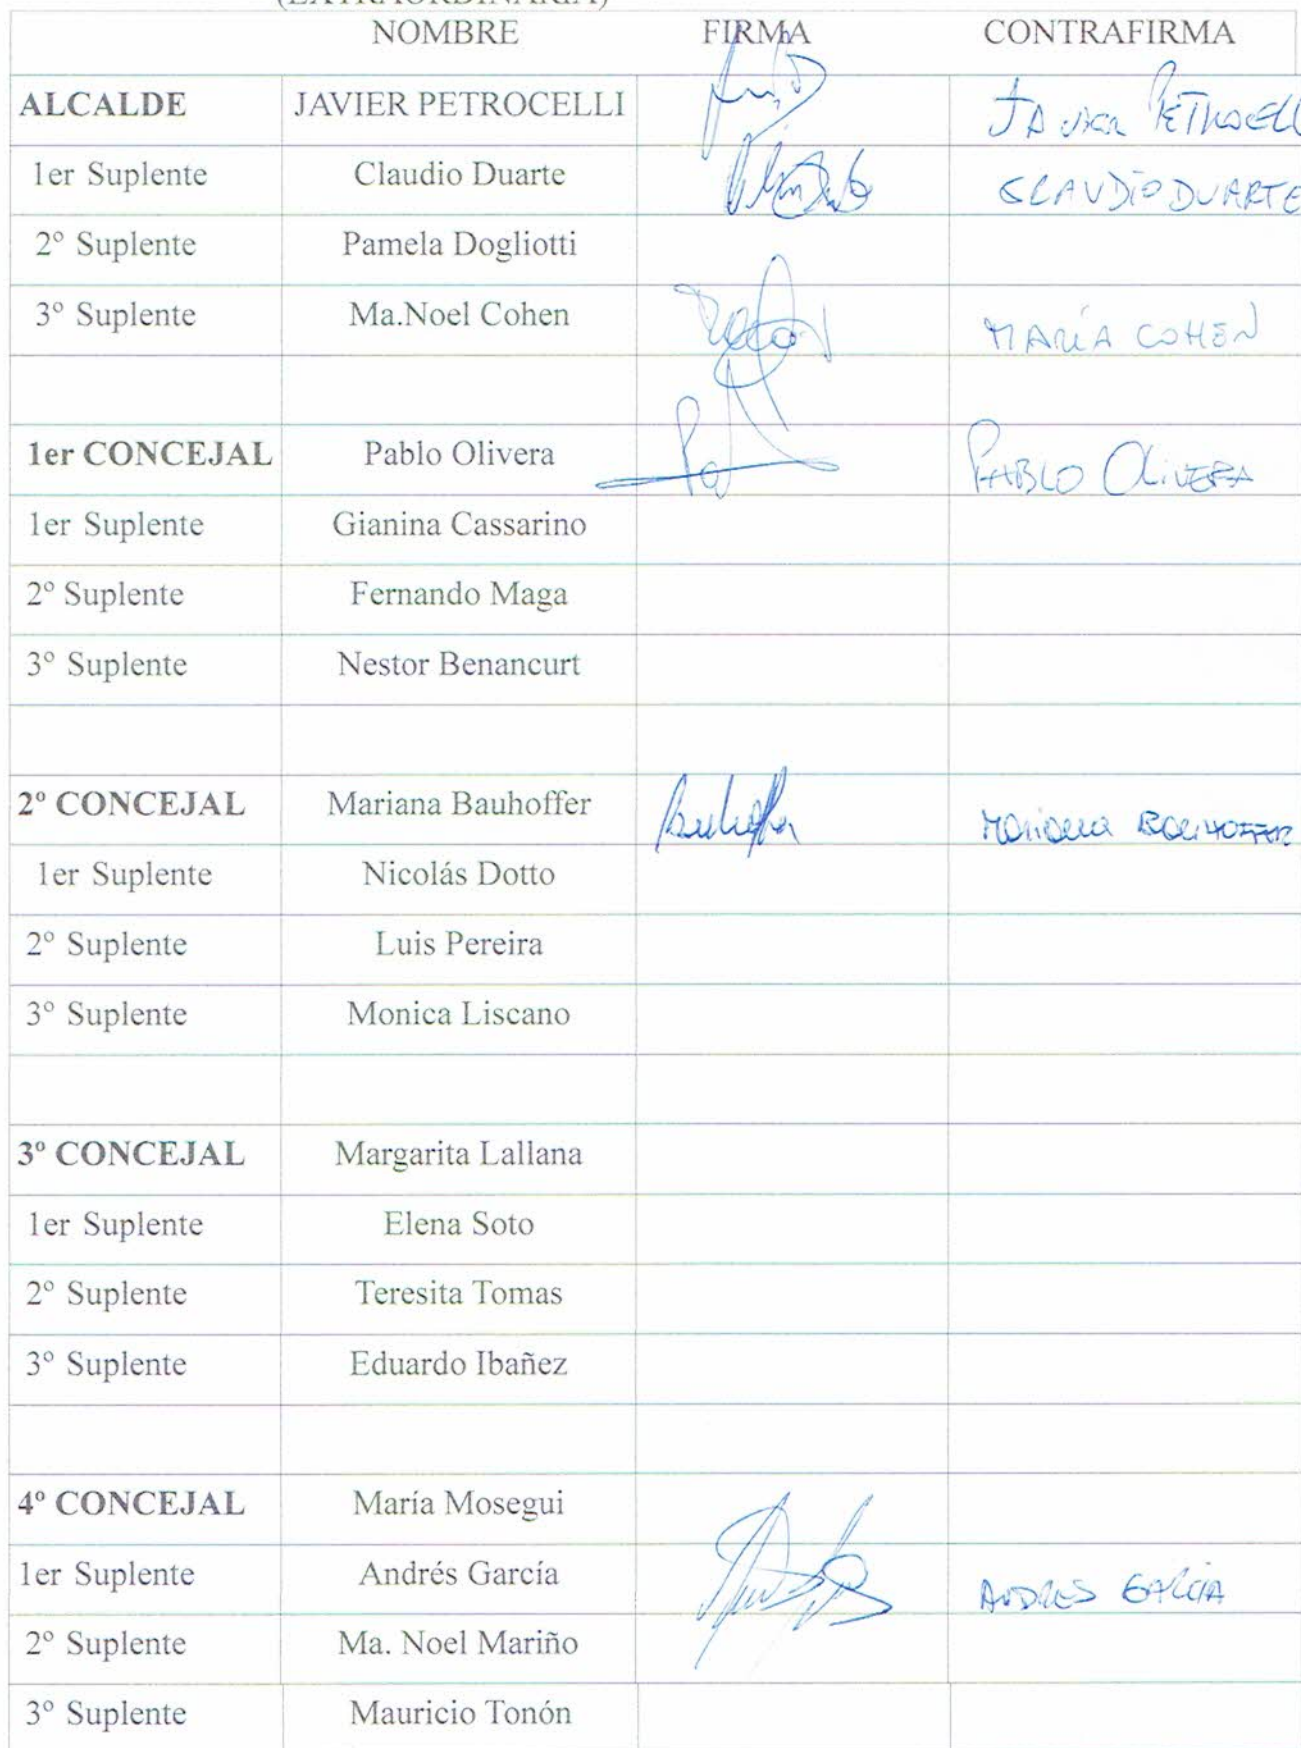 (EXTRAORDINARIA)
NOMBRE FIRMA CONTRAFIRMA
ALCALDE JAVIER PETROCELLI JAVIER PETROCELLI
1er Suplente Claudio Duarte CLAUDIO DUARTE
2º Suplente Pamela Dogliotti
3º Suplente Ma.Noel Cohen MARÍA COHEN
1er CONCEJAL Pablo Olivera PABLO OLIVERA
1er Suplente Gianina Cassarino
2º Suplente Fernando Maga
3º Suplente Nestor Benancurt
2º CONCEJAL Mariana Bauhoffer Bauhoffer Mariana BAUHOFFER
1er Suplente Nicolás Dotto
2º Suplente Luis Pereira
3º Suplente Monica Liscano
3º CONCEJAL Margarita Lallana
1er Suplente Elena Soto
2º Suplente Teresita Tomas
3º Suplente Eduardo Ibañez
4º CONCEJAL María Mosegui
1er Suplente Andrés García ANDRES GARCIA
2º Suplente Ma. Noel Mariño
3º Suplente Mauricio Tonón